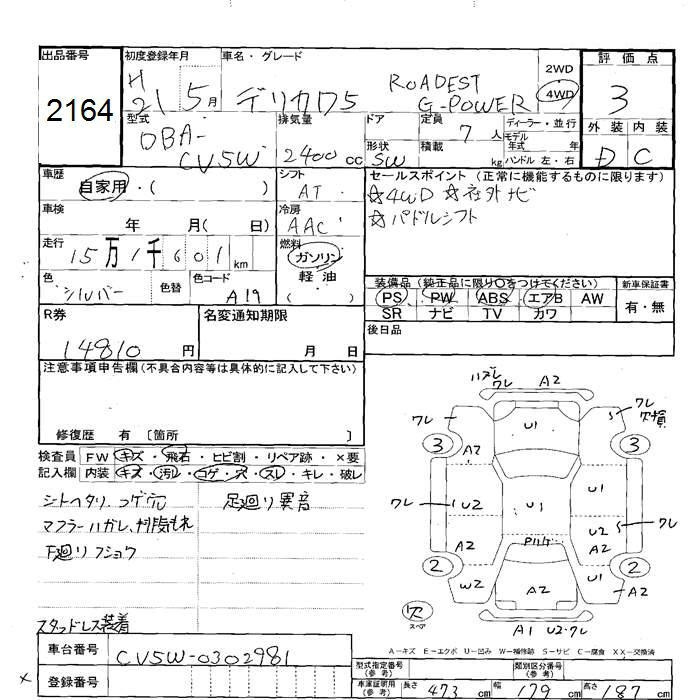 出品番号
2164
初度登録年月
H
21 5月
車名・グレード
デリカD5
ROADEST
G-POWER
2WD
4WD
評価点
3
外装 内装
D C
型式
DBA-
CV5W
排気量
2400cc
ドア
形状
SW
定員
7人
積載
kg
ディーラー・並行
モデル
年式 年
ハンドル 左・右
車歴
自家用・( )
シフト
AT
セールスポイント (正常に機能するものに限ります)
☆4WD ☆社外ナビ
☆パドルシフト
車検
年 月( 日)
冷房
AAC
走行
15万1千601km
燃料
ガソリン
軽油
( )
色
シルバー
色替
色コード
A19
装備品 (純正品に限り〇をつけてください)
PS PW ABS エアB AW
SR ナビ TV カワ
新車保証書
有・無
R券
14810円
名変通知期限
月 日
後日品
注意事項申告欄(不具合内容等は具体的に記入して下さい)
修復歴 有 〔箇所 〕
検査員
記入欄
FW キズ・飛石・ヒビ割・リペア跡・×要
内装 キズ・汚レ・コゲ・穴・スレ・キレ・破レ
シートヘタリ、コゲ穴
足廻り異音
マフラーハガレ、排気もれ
下廻りフショク
スタッドレス装着
ハズレ
ワレ
A2
ワレ
ワレ
欠損
3
U1
3
A2
U1
ワレ
U2
U1
U2
ワレ
A2
A2
2
2
W2
A2
U1
A2
欠
スペア
A1 U2・ワレ
A-キズ E-エクボ U-凹み W-補修跡 S-サビ C-腐食 XX-交換済
車台番号
CV5W-0302981
登録番号
×
型式指定番号
(参考)
類別区分番号
(参考)
車庫証明用
(参考)
長さ 473cm 幅 179cm 高さ 187cm